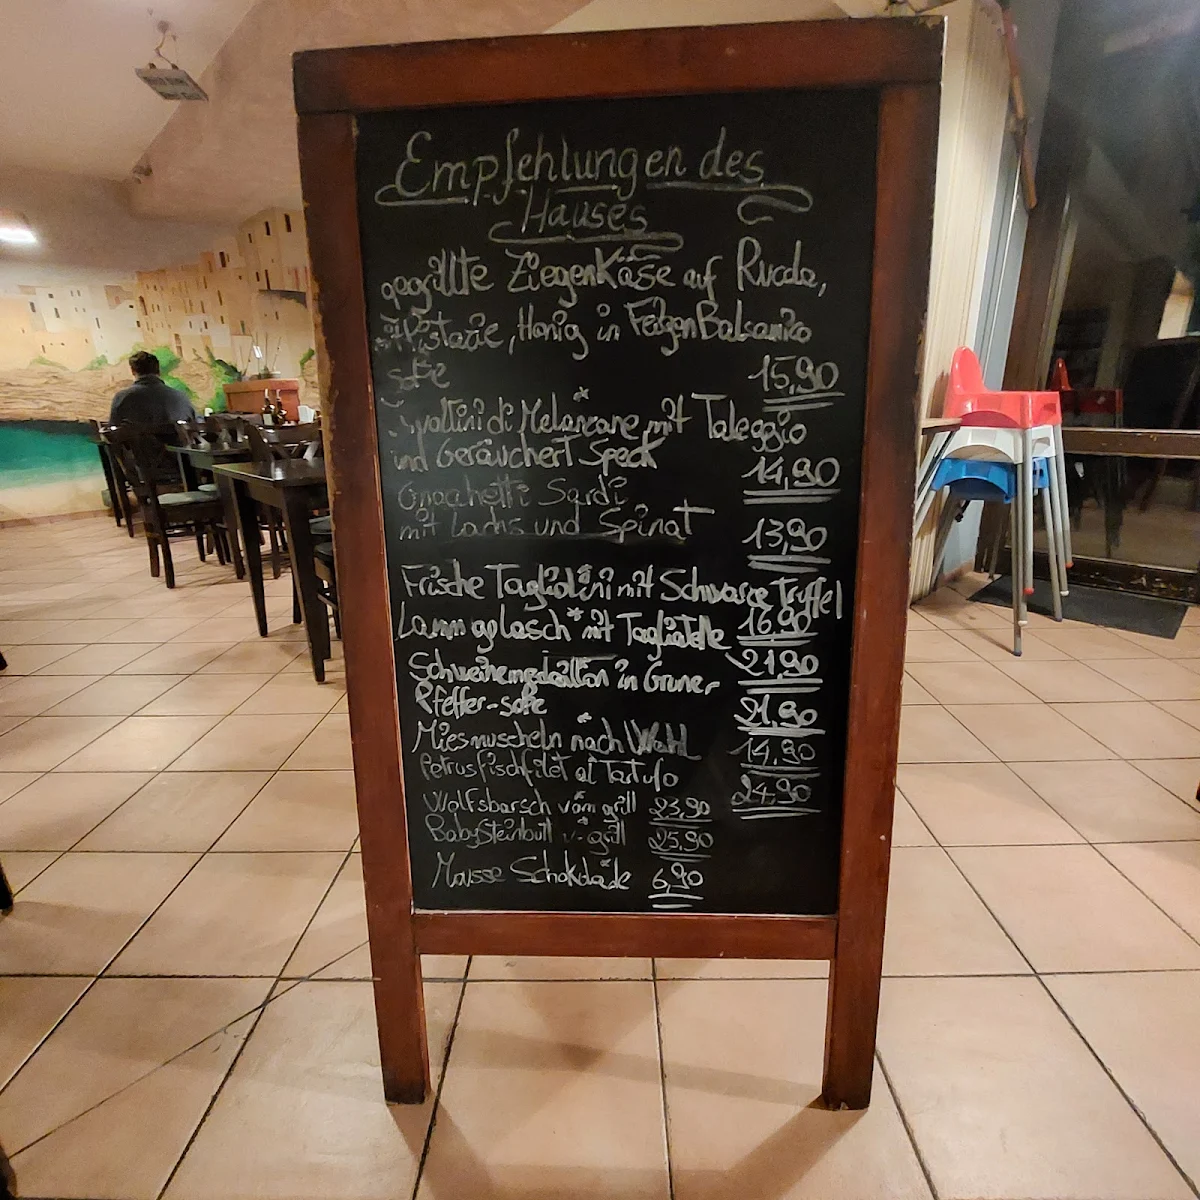 Empfehlungen des
Hauses
gegrillte Ziegenkäse auf Rucola,
Pistazie, Honig in Feigen Balsamico
soße 15,90
*
Involtini di Melanzane mit Taleggio
und Geräuchert Speck 14,90
Gnocchetti Sardi
mit Lachs und Spinat 13,90
Frische Tagliolini mit Schwarze Trüffel
* 16,90
Lamm gulasch mit Tagliatelle 21,90
Schweinemedaillon in Grüner
Pfeffer-soße 21,90
*
Miesmuscheln nach Wahl 14,90
Petrusfischfilet al Tartufo 24,90
Wolfsbarsch vom grill 23,90
BabySteinbutt v. grill 25,90
Mousse Schokolade 6,90